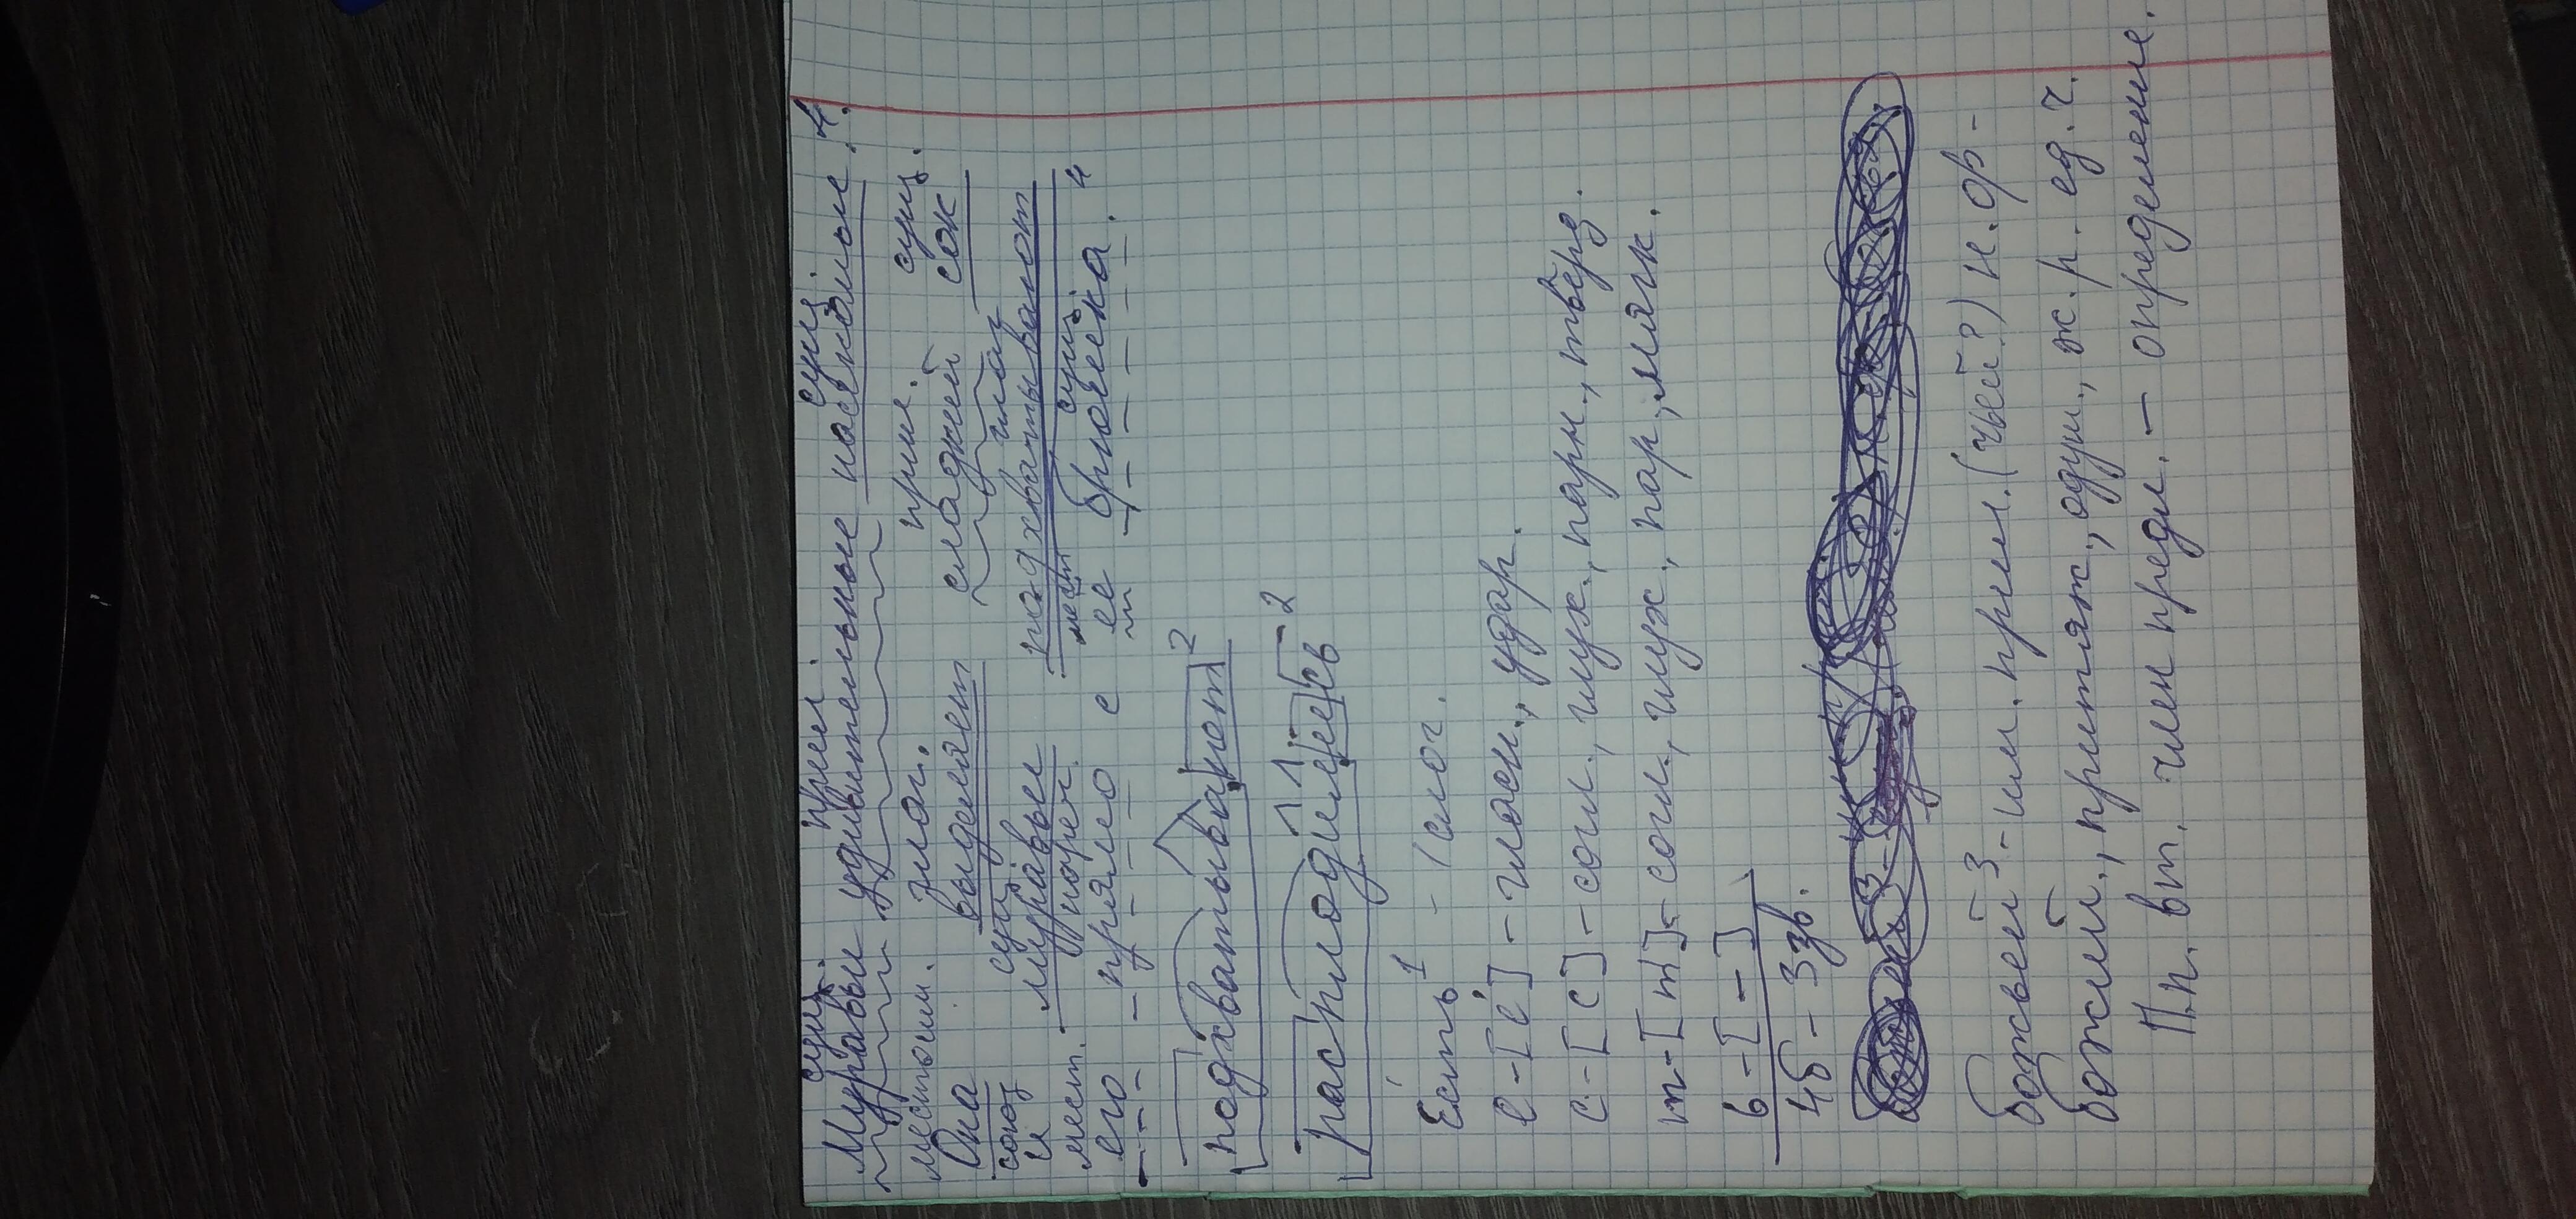 сущ. прил сущ
Муравьи удивительные насекомые. 4.
местоим. глаг. прил. сущ.
Она выделяет сладкий сок
союз сущ глаг
и муравьи подхватывают
мест. нареч. мест сущ.
его - прямо с ее брюшка. 4
подхватывают 2
расплодились -2
Есть 1 - 1 слог.
е - [е́] - гласн., удар.
с - [с] - согл., глух., парн., твёрд.
т - [т] - согл., глух., пар., мягк.
ь - [-]
4б - 3зв.
божьей 3 - им. прил. (чьей?) н. ф -
божий, притяж., одуш., ж. р. ед. ч.
П.п. вт. член предл. - определение.